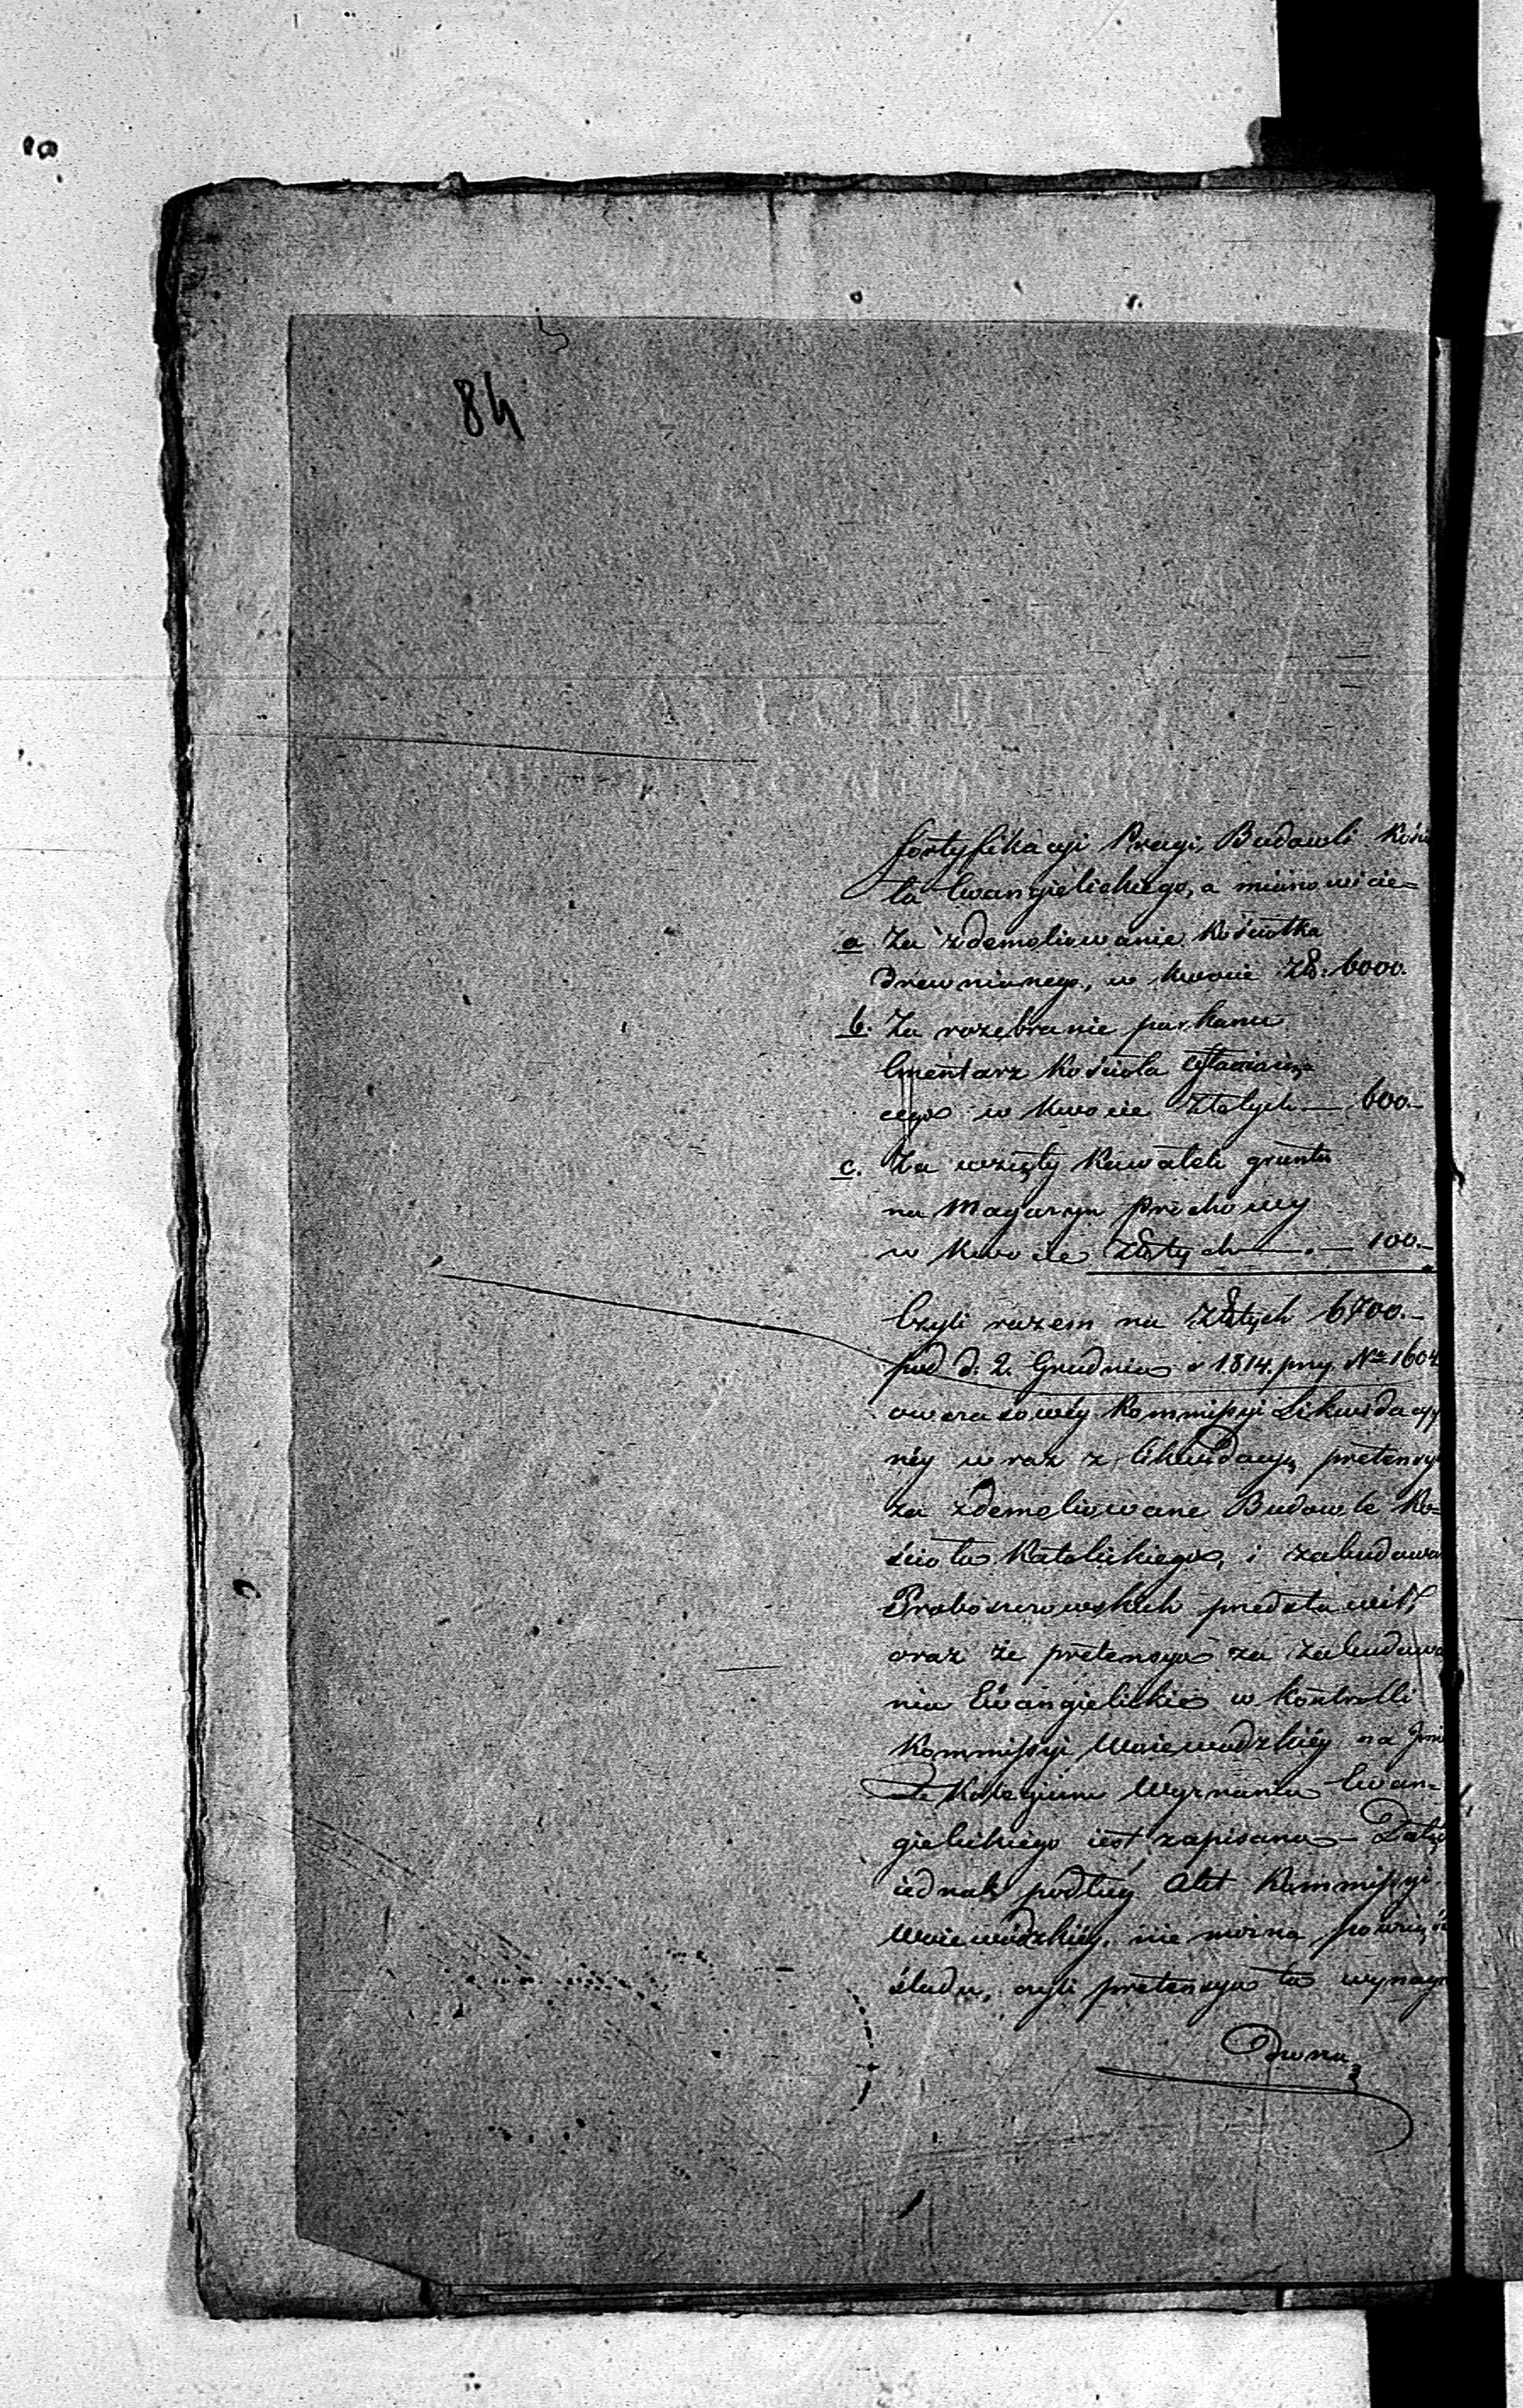 84
fortyfikacyi Pragi, Budowli Kości
ła Ewangielickiego, a mianowicie=
a. Za zdemoliowanie Kościołka
drewnianego, w kwocie Zł. 6000.
b. Za rozebranie parkanu
Cmentarz Kościoła otaczaią=
cego w kwocie Złotych — 600.—
c. Za wzięty kawałek gruntu
na Magazyn prochowy
w kwocie Złotych —.— 100.—
Czyli razem na Złotych 6700.—
pod d. 2. Grudnia r 1814. przy Nrze 1604
owczasowéy Kommissyi Likwidacyy
néy wraz z likwidacyą pretensyi
za zdemoliowane Budowle Ko=
ścioła Katolickiego, i zabudowa
Proboszczowskich przedstawił,
oraz że pretensya za zabudowa
nia Ewangielickie w kontrolli
Kommissyi Woiewodzkiéy na Jmie
Kolegium Wyznania Ewan=
gielickiego iest zapisana — Daléy
iednak podług Akt Kommissyi
Woiewódzkiéy, nie można powziąść
śladu, czyli pretensya ta wynagro